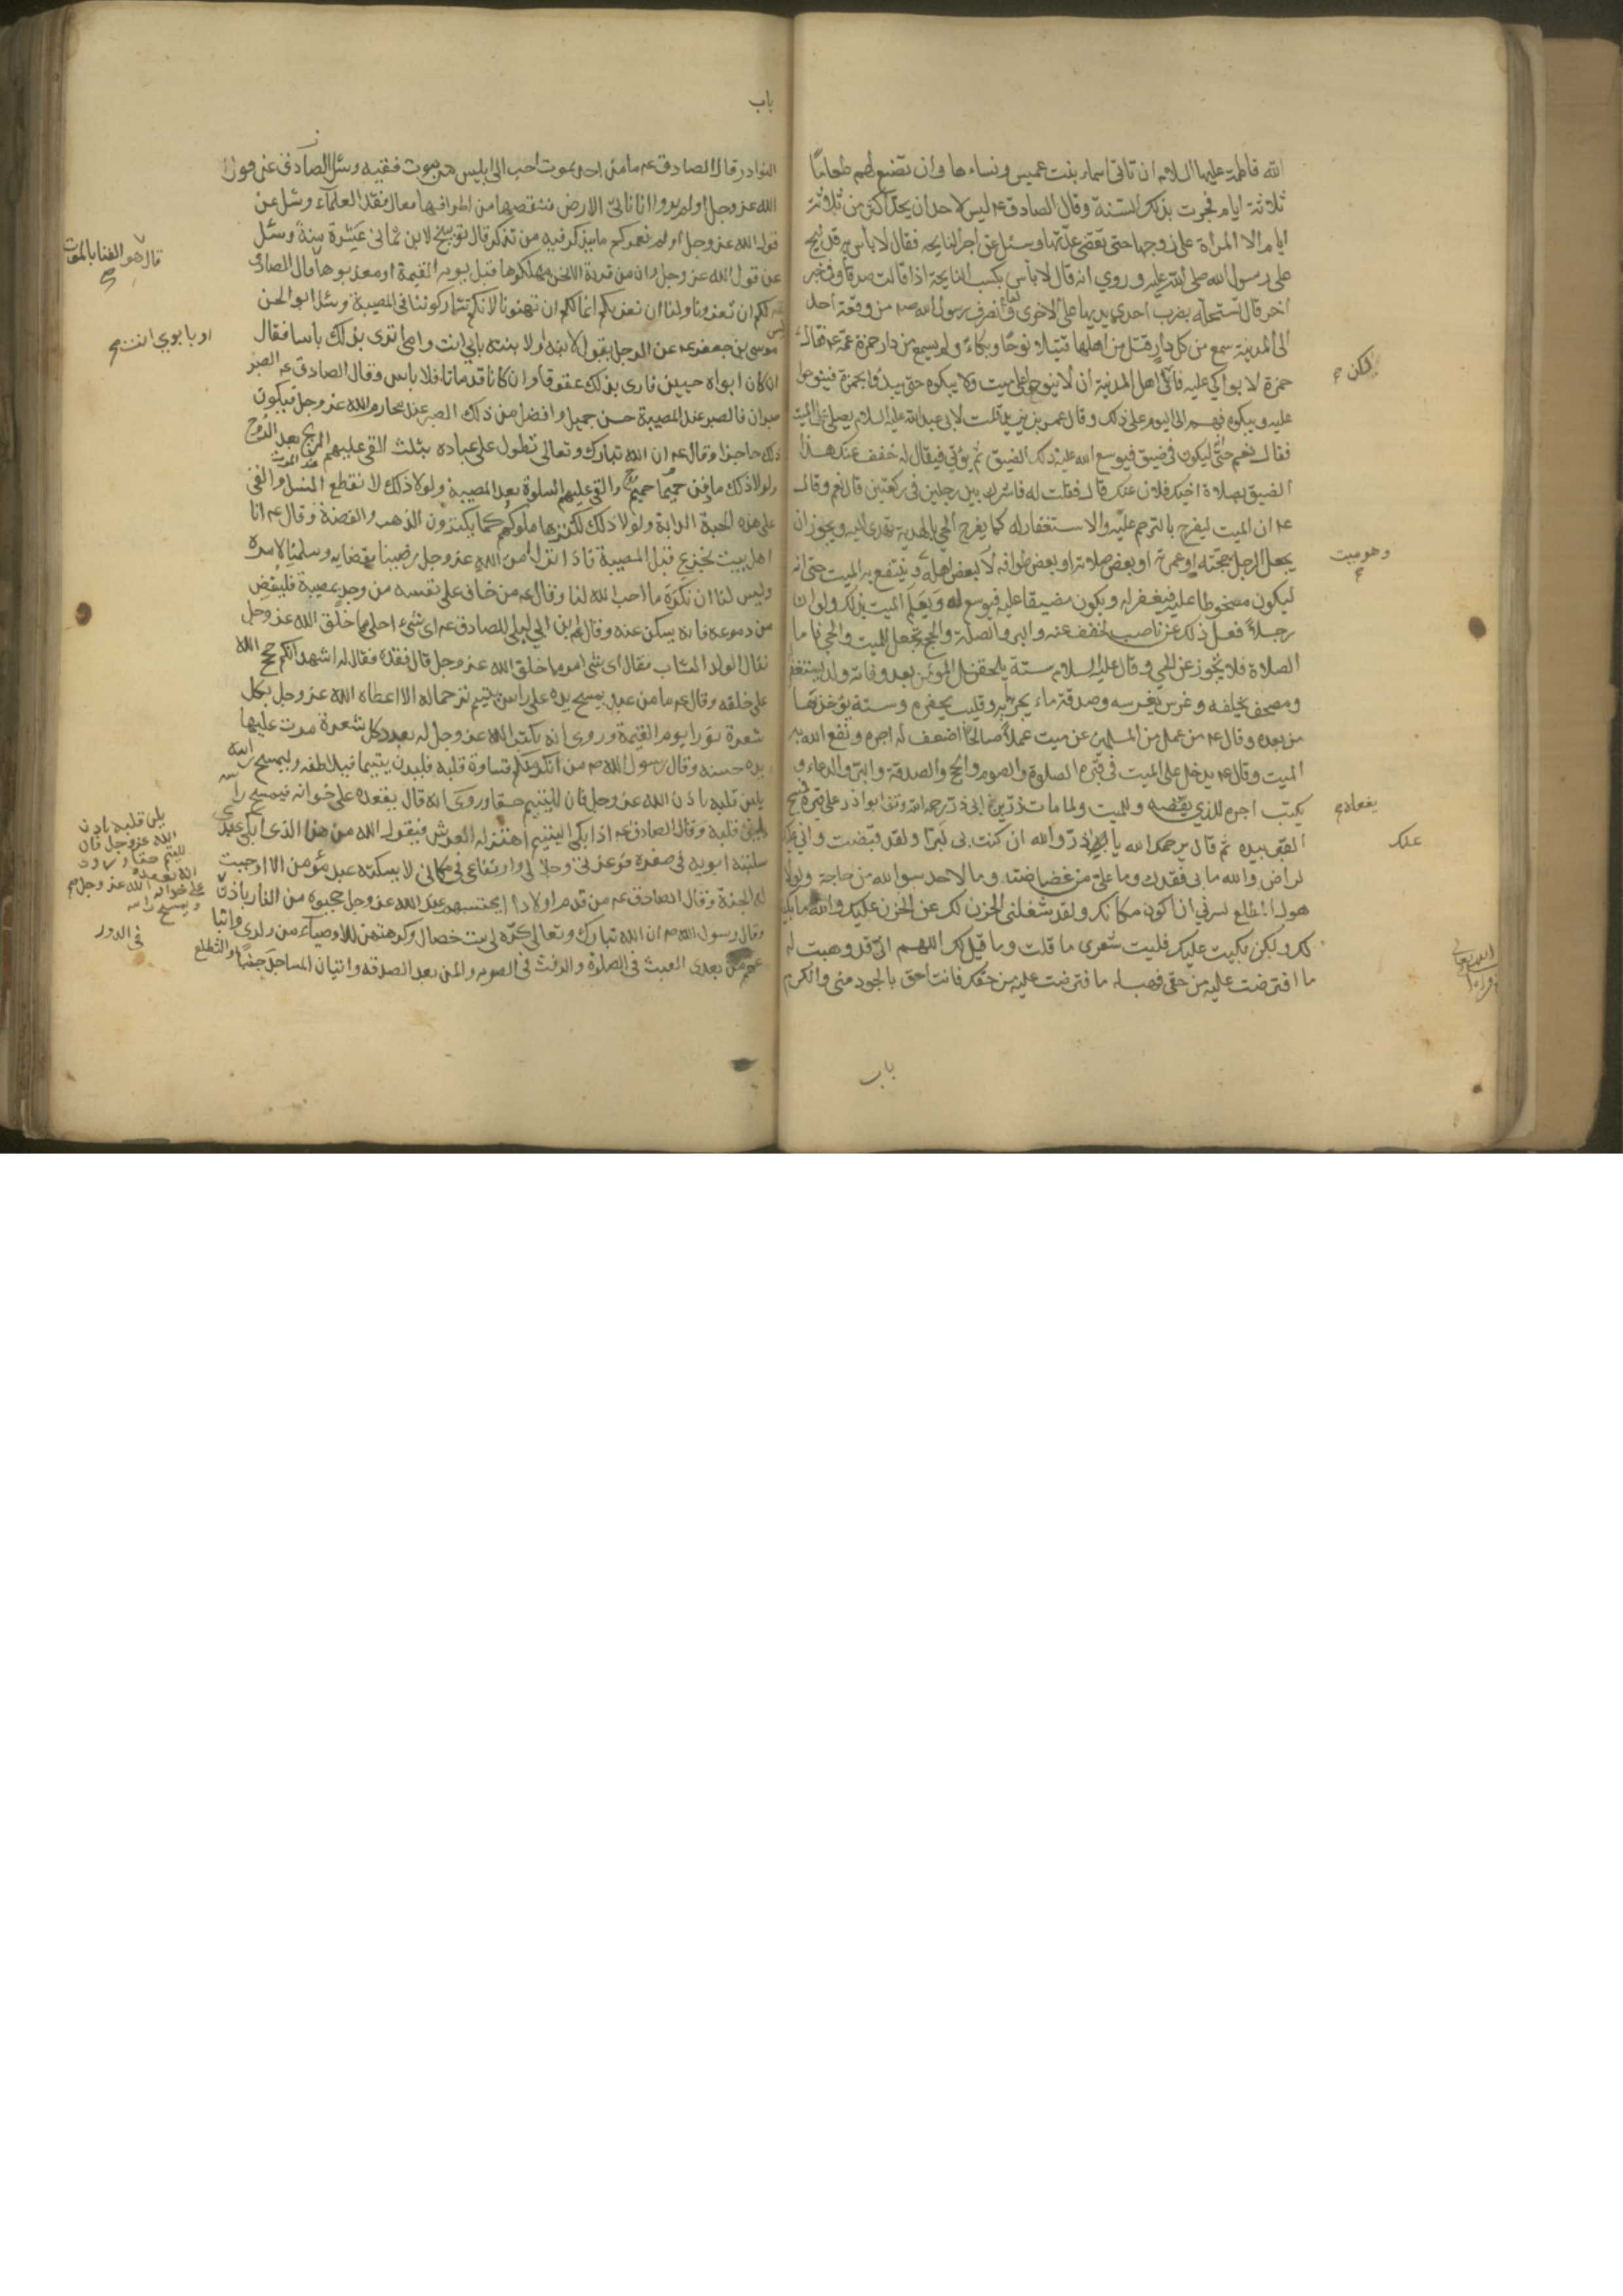 الله فاطمة عليها السلام ان تاتي اسماء بنت عميس ونساءها وان تصنع لهم طعاما
ثلاثة ايام فجرت بذلك السنة وقال الصادق ع ليس لاحد ان يحد اكثر من ثلاثة
ايام الا المراة على زوجها حتى تقضي عدتها وسئل عن اجر النايحه فقال لا باس به قد نيح
على رسول الله صلى الله عليه و روي انه قال لا باس بكسب النايحة اذا قالت صدقا وفي خبر
اخر قال تستحله بضرب احدى يديها على الاخرى ولما انصرف رسول الله ص من وقعة احد
الى المدينة سمع من كل دار قتل من اهلها قتيلا نوحا وبكاء ولم يسمع من دار حمزة عمه ع فقال
حمزة لا بواكي عليه فآلى اهل المدينة ان لا ينوحوا على ميت ولا يبكوه حتى يبدؤا بحمزة فينوحوا
عليه ويبكوه فهم الى اليوم على ذلك وقال عمر بن يزيد قلت لابي عبد الله عليه السلام يصلى على الميت
فقال نعم حتى ليكون في ضيق فيوسع الله عليه ذلك الضيق ثم يؤتى فيقال له خفف عنك هذا
الضيق بصلاة اخيك فلان عنك قال فقلت له فاشرك بين رجلين في ركعتين قال نعم وقال
ع ان الميت ليفرح بالترحم عليه والاستغفار له كما يفرح الحي بالهدية تهدى اليه ويجوز ان
يجعل الرجل حجته او عمرته او بعض صلاته او بعض طوافه لبعض اهله وينتفع به الميت حتى انه
ليكون مسخوطا عليه فيغفر له ويكون مضيقا عليه فيوسع له ويعلم الميت بذلك ولو ان
رجلا فعل ذلك عن ناصب لخفف عنه والبر والصلة والحج يجعل للميت والحي فاما
الصلاة فلا تجوز عن الحي وقال عليه السلام ستة يلحقن المؤمن بعد وفاته ولد يستغفر
ومصحف يخلفه وغرس يغرسه وصدقة ماء يجريه وقليب يحفره وسنة يؤخذ بها
من بعده وقال ع من عمل من المسلمين عن ميت عملا صالحا اضعف له اجره ونفع الله به
الميت وقال ع يدخل على الميت في قبره الصلوة والصوم والحج والصدقة والبر والدعاء و
يكتب اجره للذي يفعله وللميت ولما مات ذر بن ابي ذر رحمه الله وقف ابو ذر على قبره فمسح
القبر بيده ثم قال يرحمك الله يا ذر والله ان كنت بي لبرا ولقد قبضت واني عنك
لراض والله ما بي فقدك وما علي من غضاضة وما لاحد سوى الله من حاجة ولولا
هول المطلع لسرني ان اكون مكانك ولقد شغلني الحزن لك عن الحزن عليك والله ما بكيت
لك ولكن بكيت عليك فليت شعري ما قلت وما قيل لك اللهم اني قد وهبت له
ما افترضت عليه من حقي فهب له ما افترضت عليه من حقك فانت احق بالجود مني والكرم
باب
لكن
وهو ميت
يفعله
عنك
باب
النوادر قال الصادق ع ما من احد يموت احب الى ابليس من موت فقيه وسئل الصادق عن قول
الله عز وجل اولم يروا انا ناتي الارض ننقصها من اطرافها فقال فقد العلماء وسئل عن
قول الله عز وجل اولم نعمركم ما يتذكر فيه من تذكر قال توبيخ لابن ثماني عشرة سنة وسئل
عن قول الله عز وجل وان من قرية الا نحن مهلكوها قبل يوم القيمة او معذبوها قال الصادق
لكم ان تعزونا ولنا ان نعزيكم انما لكم ان تهنونا لانكم تشاركوننا في المصيبة وسئل ابو الحسن
موسى بن جعفر ع عن الرجل يقول لابنه او لابنته بابي انت وامي اترى بذلك باسا فقال
ان كان ابواه حيين فارى بذلك عقوقا وان كانا قد ماتا فلا باس وقال الصادق ع الصبر
صبران فالصبر عند المصيبة حسن جميل وافضل من ذلك الصبر عند محارم الله عز وجل فيكون
ذلك حاجزا وقال ع ان الله تبارك وتعالى تطول على عباده بثلث القى عليهم الريح بعد الروح
ولولا ذلك ما دفن حميم حميما والقى عليهم السلوة بعد المصيبة ولولا ذلك لانقطع النسل والقى
على هذه الحبة الدابة ولولا ذلك لكنزها ملوكهم كما يكنزون الذهب والفضة وقال ع انا
اهل بيت نجزع قبل المصيبة فاذا نزل امر الله عز وجل رضينا بقضايه وسلمنا لامره
وليس لنا ان نكره ما احب الله لنا وقال ع من خاف على نفسه من وجد بمصيبة فليفض
من دموعه فانه يسكن عنه وقال ابن ابي ليلى للصادق ع اي شيء احلى مما خلق الله عز وجل
فقال الولد الشاب فقال اي شي امر مما خلق الله عز وجل قال فقده فقال له اشهد انكم حجج الله
على خلقه وقال ع ما من عبد يمسح يده على راس يتيم ترحما له الا اعطاه الله عز وجل بكل
شعرة نورا يوم القيمة وروي انه يكتب الله عز وجل له بعدد كل شعرة مرت عليها
يده حسنه وقال رسول الله ص من انكر منكم قساوة قلبه فليدن يتيما فيلاطفه وليمسح راسه
يلين قلبه باذن الله عز وجل فان لليتيم حقا وروي انه قال يقعده على خوانه فيمسح راسه
يلين قلبه وقال الصادق ع اذا بكى اليتيم اهتز له العرش فيقول الله من هذا الذي ابكى عبدي
سلبته ابويه في صغره فوعزتي وجلالي وارتفاعي في مكاني لا يسكته عبد مؤمن الا اوجبت
له الجنة وقال الصادق ع من قدم اولادا يحتسبهم عند الله عز وجل حجبوه من النار باذن
وقال رسول الله ص ان الله تبارك وتعالى كره لي ست خصال وكرهتهن للاوصياء من ولدي واتبا
عهم من بعدي العبث في الصلوة والرفث في الصوم والمن بعد الصدقه واتيان المساجد جنبا والتطلع
قال هو الفنا بالموت
او بابوي انت
يلن قلبه باذن
الله عز وجل فان
لليتيم حقا
في الدور